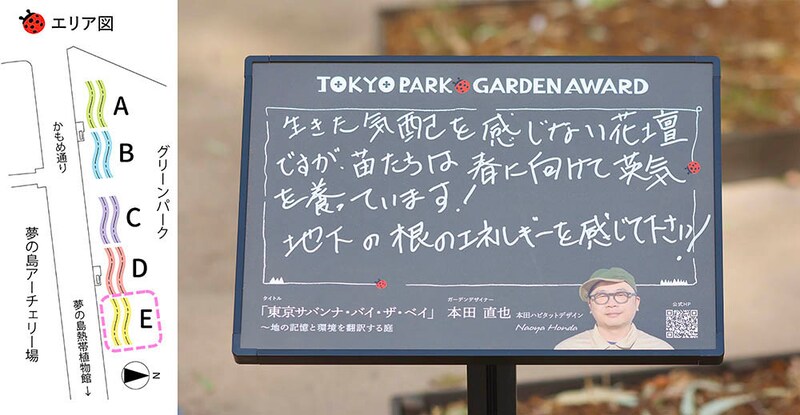 エリア図
A
B
C
D
E
かもめ通り
グリーンパーク
夢の島アーチェリー場
夢の島熱帯植物館→
N
TOKYO PARK GARDEN AWARD
生きた気配を感じない花壇
ですが、苗たちは春に向けて英気
を養っています!
地下の根のエネルギーを感じて下さい!
タイトル
「東京サバンナ・バイ・ザ・ベイ」
〜地の記憶と環境を翻訳する庭
ガーデンデザイナー
本田 直也 本田ハビタットデザイン
Naoya Honda
公式HP